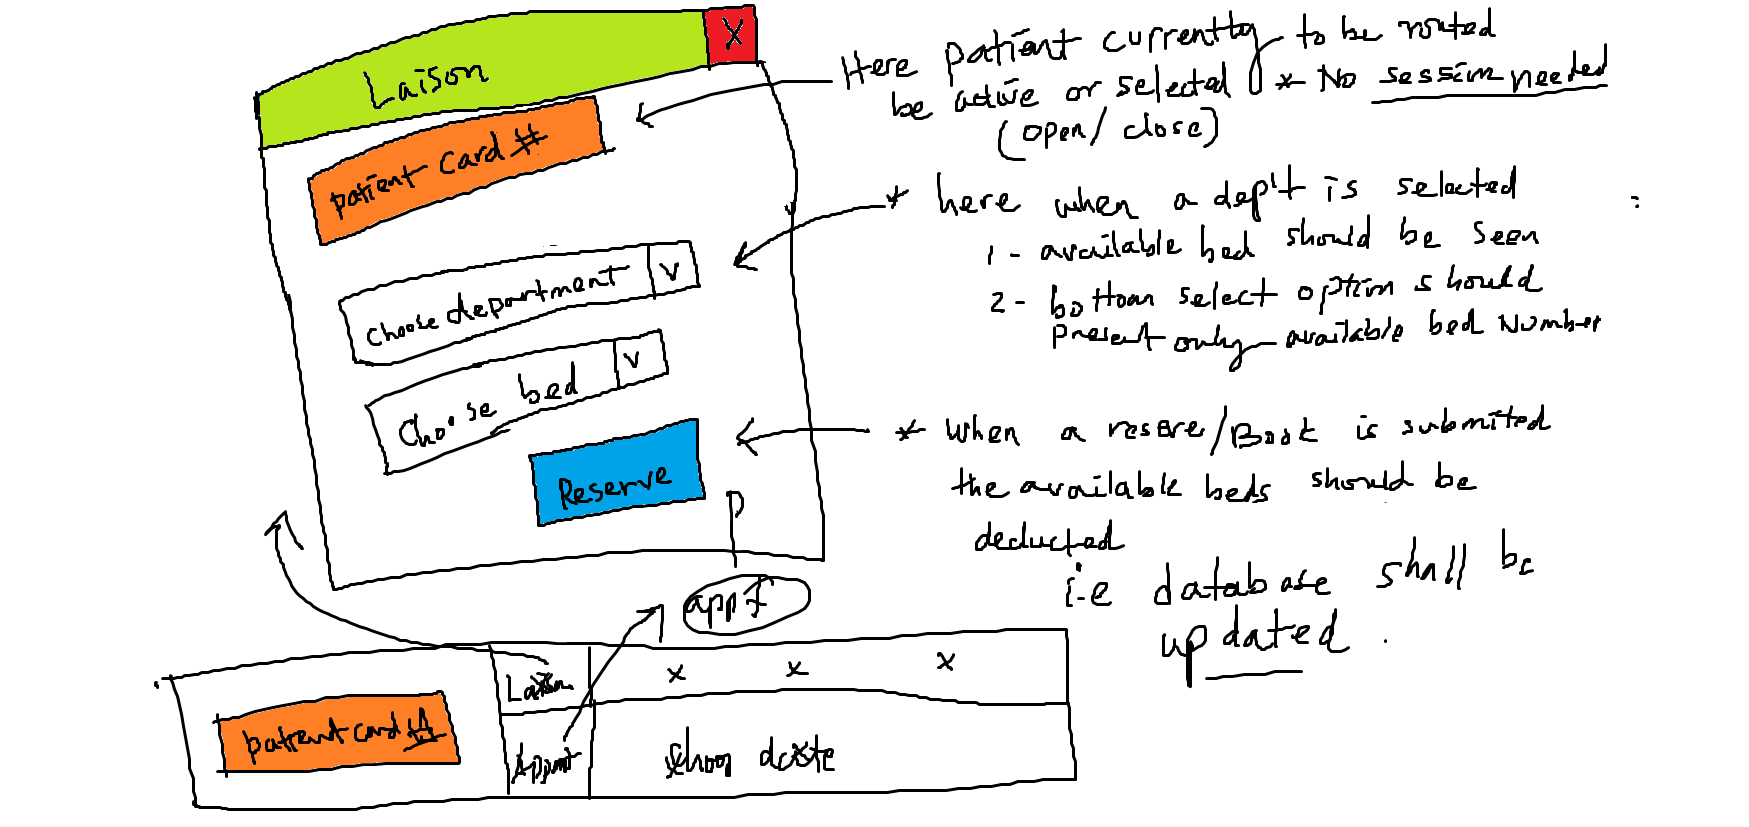 Laison
X
patient card #
Choose department
v
Choose bed
v
Reserve
Here patient currently to be routed
be active or selected * No session needed
(open/close)
* here when a dep't is selected
1 - available bed should be seen
2 - bottom select option should
present only available bed Number
* When a resere/Book is submited
the available beds should be
deducted
i.e database shall be
updated.
P
appt
patient card #
Laison
x x x
Appmt
date